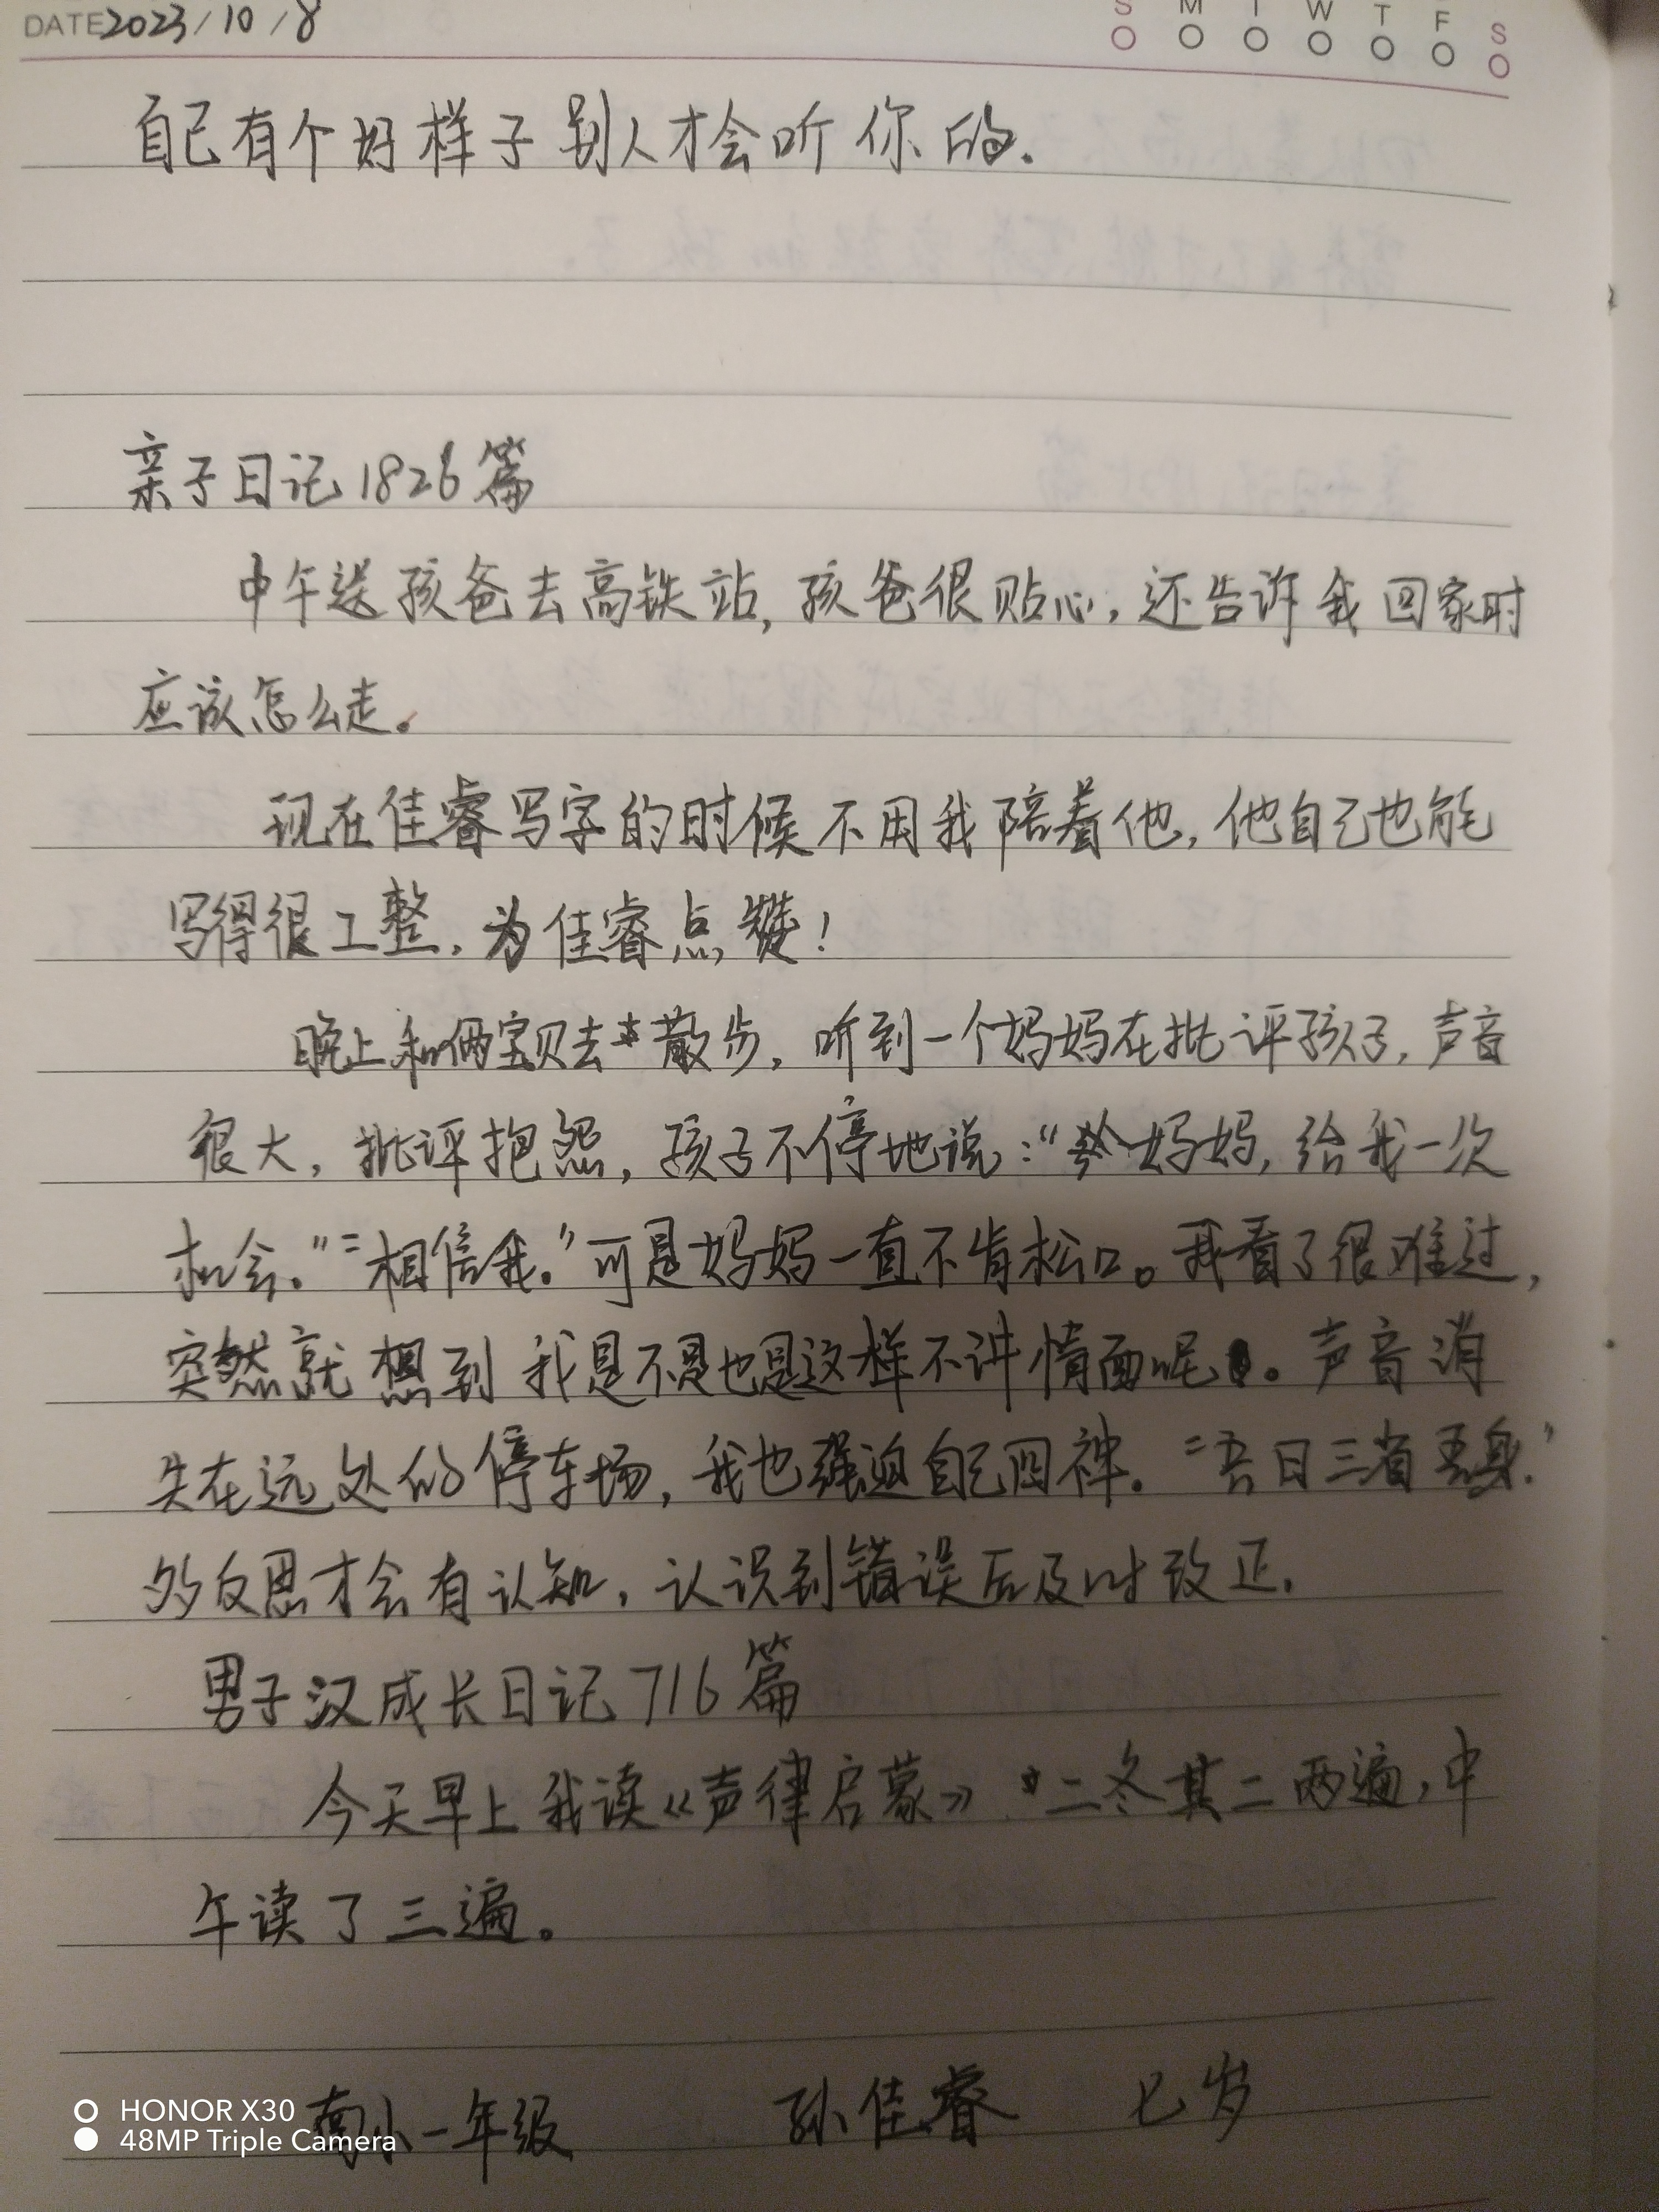 DATE 2023/10/8
S M T W T F S
自己有个好样子别人才会听你的.
亲子日记1826篇
中午送孩爸去高铁站,孩爸很贴心,还告诉我回家时
应该怎么走。
现在佳睿写字的时候不用我陪着他,他自己也能
写得很工整,为佳睿点赞!
晚上和俩宝贝去散步,听到一个妈妈在批评孩子,声音
很大,批评抱怨,孩子不停地说:“妈妈,给我一次
机会.”“相信我.”可是妈妈一直不肯松口。我看了很难过,
突然就想到我是不是也是这样不讲情面呢。声音消
失在远处的停车场,我也强迫自己回神.“吾日三省吾身.”
多反思才会有认知,认识到错误后及时改正.
男子汉成长日记716篇
今天早上我读《声律启蒙》二冬其二两遍,中
午读了三遍。
南小一年级 孙佳睿 七岁
HONOR X30
48MP Triple Camera